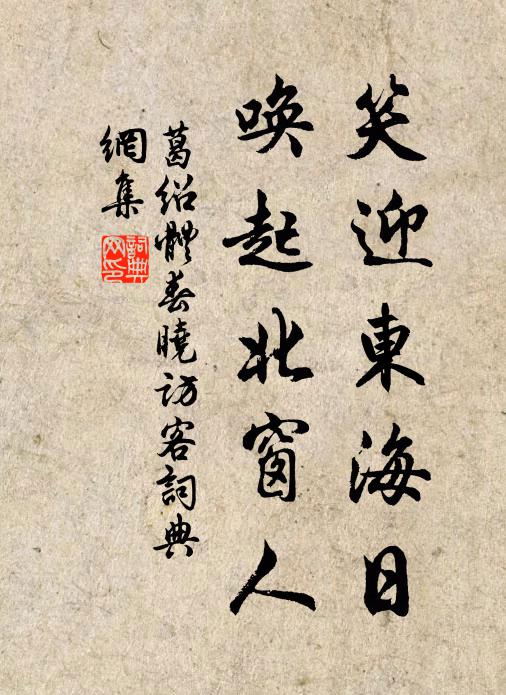 笑迎東海日
喚起北窗人
葛紹體春曉訪客詞典
網集
詞典
网印